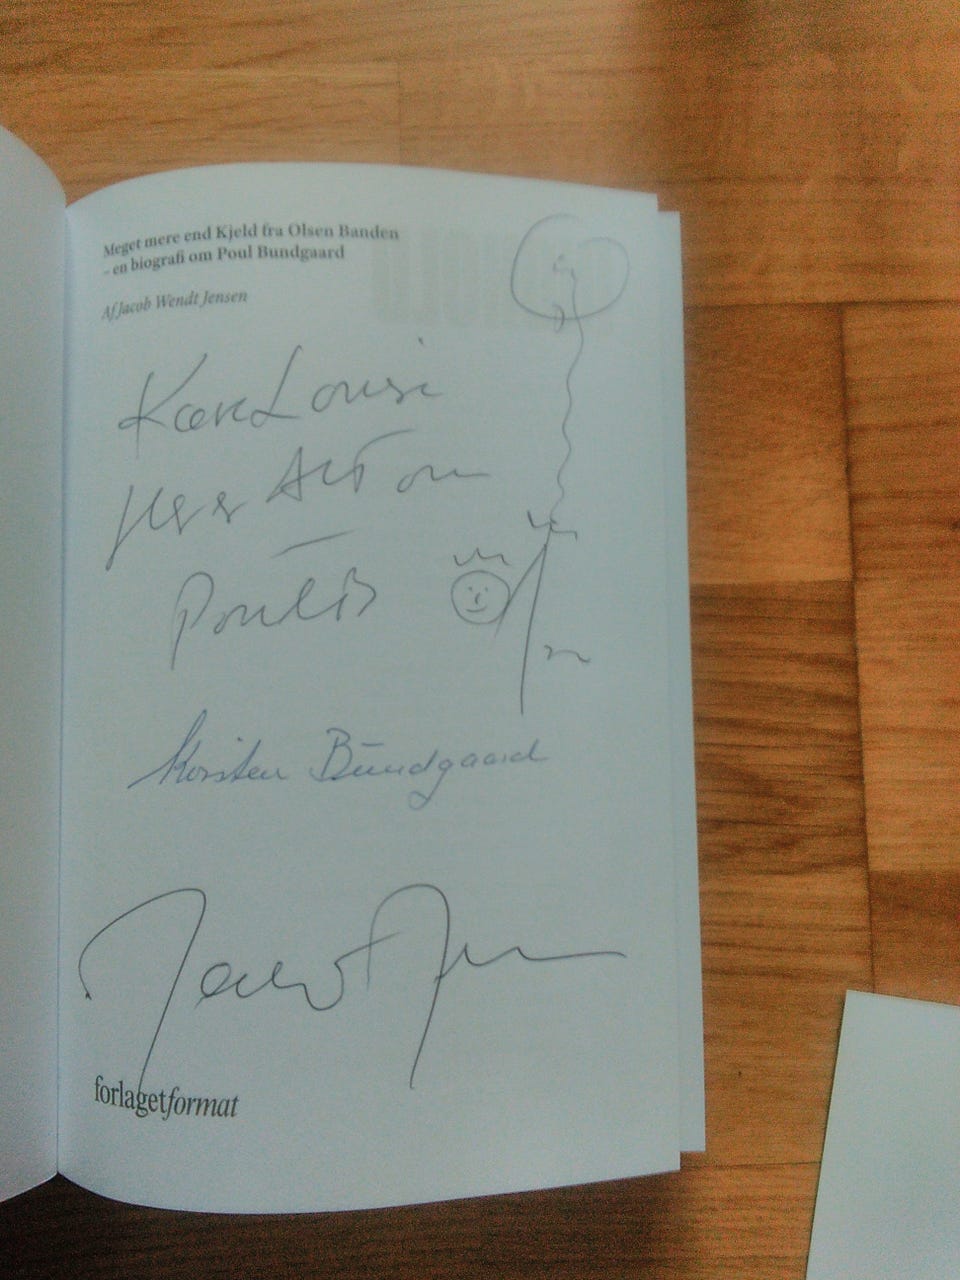 Meget mere end Kjeld fra Olsen Banden
– en biografi om Poul Bundgaard
Af Jacob Wendt Jensen
Kære Louise
Poul B
Kirsten Bundgaard
forlagetformat